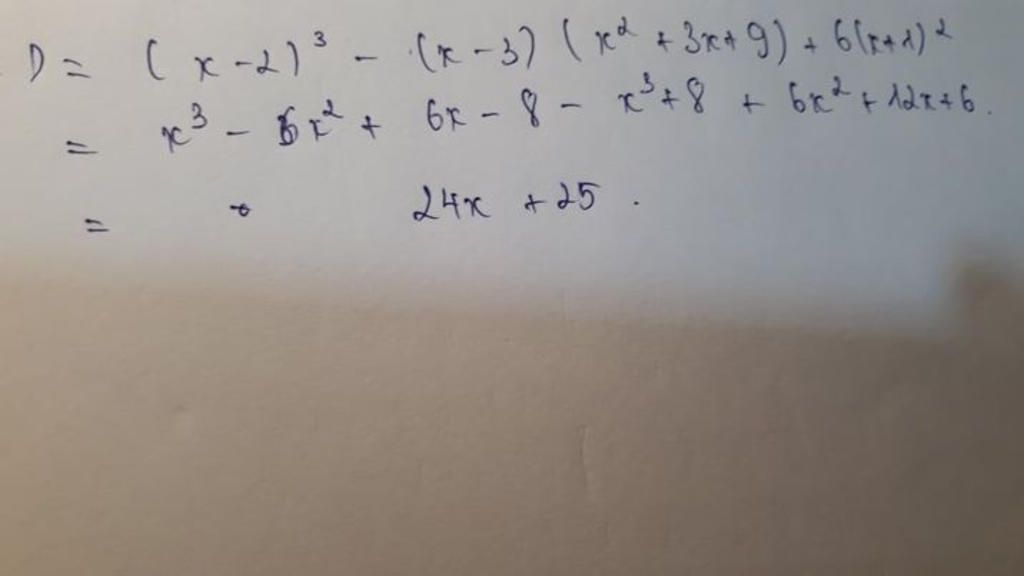 D = (x - 2)³ - (x - 3)(x² + 3x + 9) + 6(x+1)²
= x³ - 6x² + 6x - 8 - x³ + 8 + 6x² + 12x + 6.
= 24x + 25.